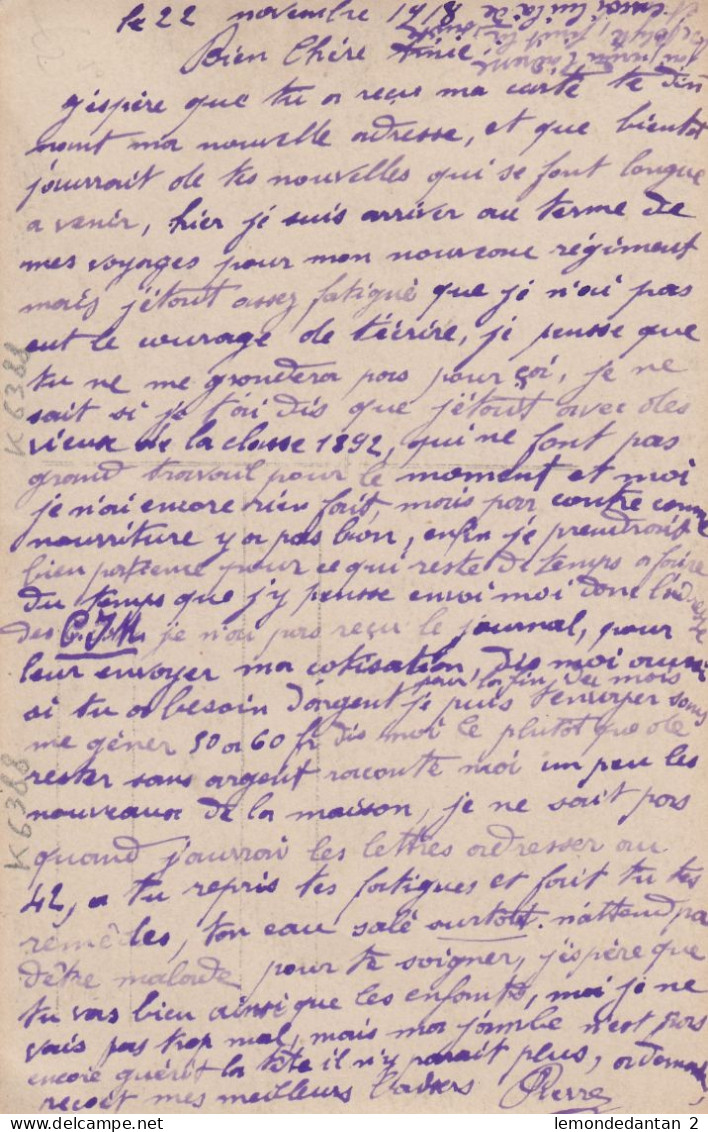 le 22 novembre 1918
Bien Chère Amie
j'éspère que tu a reçus ma carte te din
nant ma nouvelle adresse, et que bientot
j'aurrait de tes nouvelles qui se font longue
a venir, hier je suis arriver au terme de
mes voyages pour mon nouveau régiment
mais j'était assez fatigué que je n'ai pas
eut le courage de t'écrire, je pensse que
tu ne me grondera pas pour çai, je ne
sait si je t'ai dis que j'était avec des
vieux de la classe 1892, qui ne font pas
grand travail pour le moment et moi
je n'ai encore rien fait, mais par contre comme
nourriture y a pas bon, enfin je prendrait
bien patience pour ce qui reste de temps a faire
Du temps que j'y pensse envoi moi donc l'adresse
des je n'ai pas reçu le journal, pour
leur envoyer ma cotisation, dis moi aussi
pour la fin du mois
si tu a besoin d'argent je puis t'envoyer sans
me gêner 50 a 60 fr dis moi le plutot que de
rester sans argent raconte moi un peu les
nouveaux de la maison, je ne sait pas
quand j'aurrai les lettres adresser au
42, a tu repris tes fatigues et fait tu tes
remèdes, ton eau salé surtout. n'attend pa
d'être malade pour te soigner, j'éspère que
tu vas bien ainsi que les enfants, moi je ne
vais pas trop mal, mais ma jambe n'est pas
encore guérit la tête il n'y parait plus, a demain,
reçoit mes meilleurs baisers Pierre
K6388
K6388
lemondedantan 2